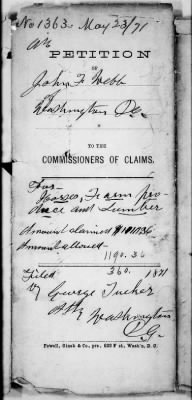 No 1363 May 23/71
PETITION
OF
John F Webb
Washington
TO THE
COMMISSIONERS OF CLAIMS.
For
Horses, Farm pro
duce and Lumber
Amount claimed
Amount allowed
1190.36
Filed 360. 1871
By George Tucker
Atty Washington
Powell, Ginck & Co., prs. 632 F st., Wash'n, D. C.